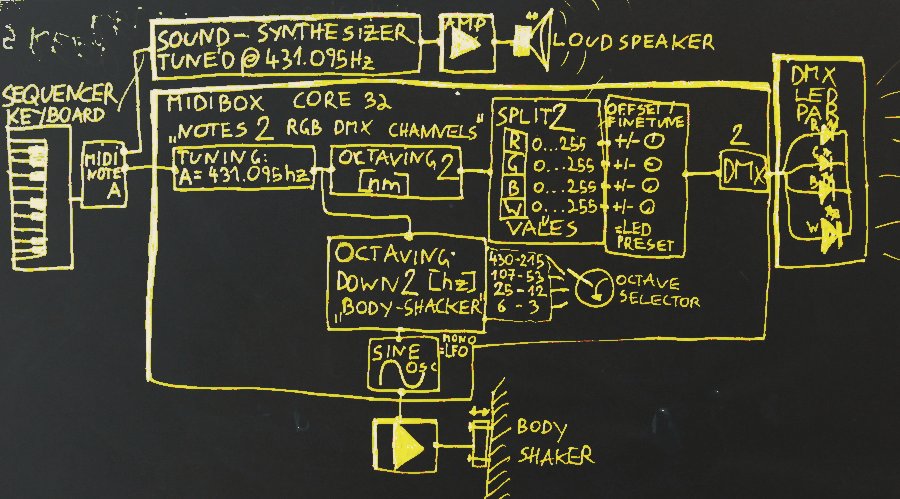 SOUND-SYNTHESIZER
TUNED @ 431.095Hz
AMP
LOUDSPEAKER
SEQUENCER
KEYBOARD
MIDI
NOTE
A
MIDIBOX CORE 32
„NOTES 2 RGB DMX CHANNELS"
TUNING:
A=431.095hz
OCTAVING 2
[nm]
SPLIT 2
R 0...255
G 0...255
B 0...255
W 0...255
VALES
OFFSET/
FINETUNE
+/-
+/-
+/-
+/-
=LED
PRESET
2
DMX
DMX
LED
PAR
R
G
B
W
OCTAVING
DOWN 2 [hz]
„BODY-SHACKER"
430-215
107-53
25-12
6-3
OCTAVE
SELECTOR
SINE
OSC
MONO
=LFO
BODY
SHAKER